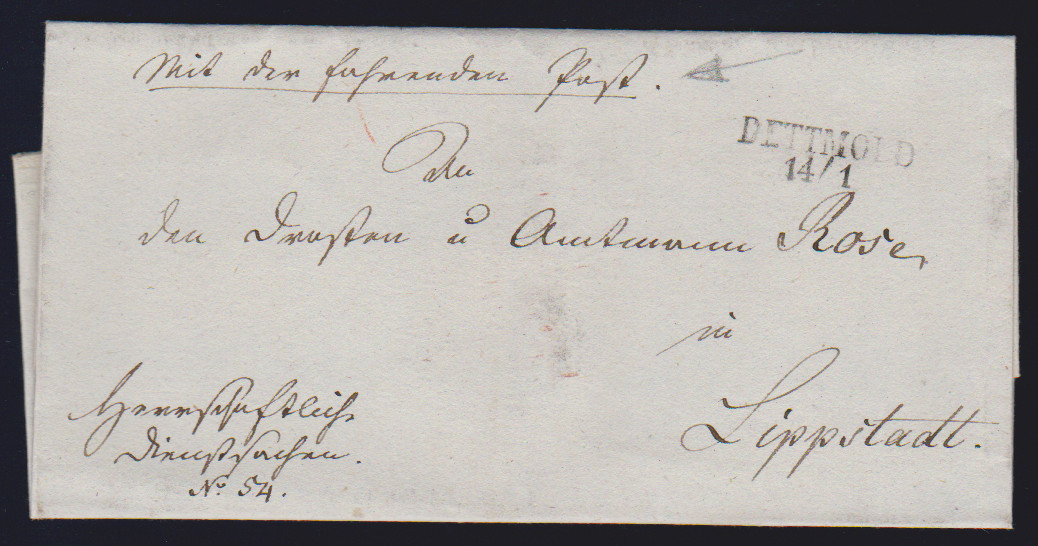 Mit der fahrenden Post.
DETTMOLD
14/1
An
den Drosten u Amtmann Rose,
in
Lippstadt.
Herrschaftliche
Dienstsachen.
No. 54.